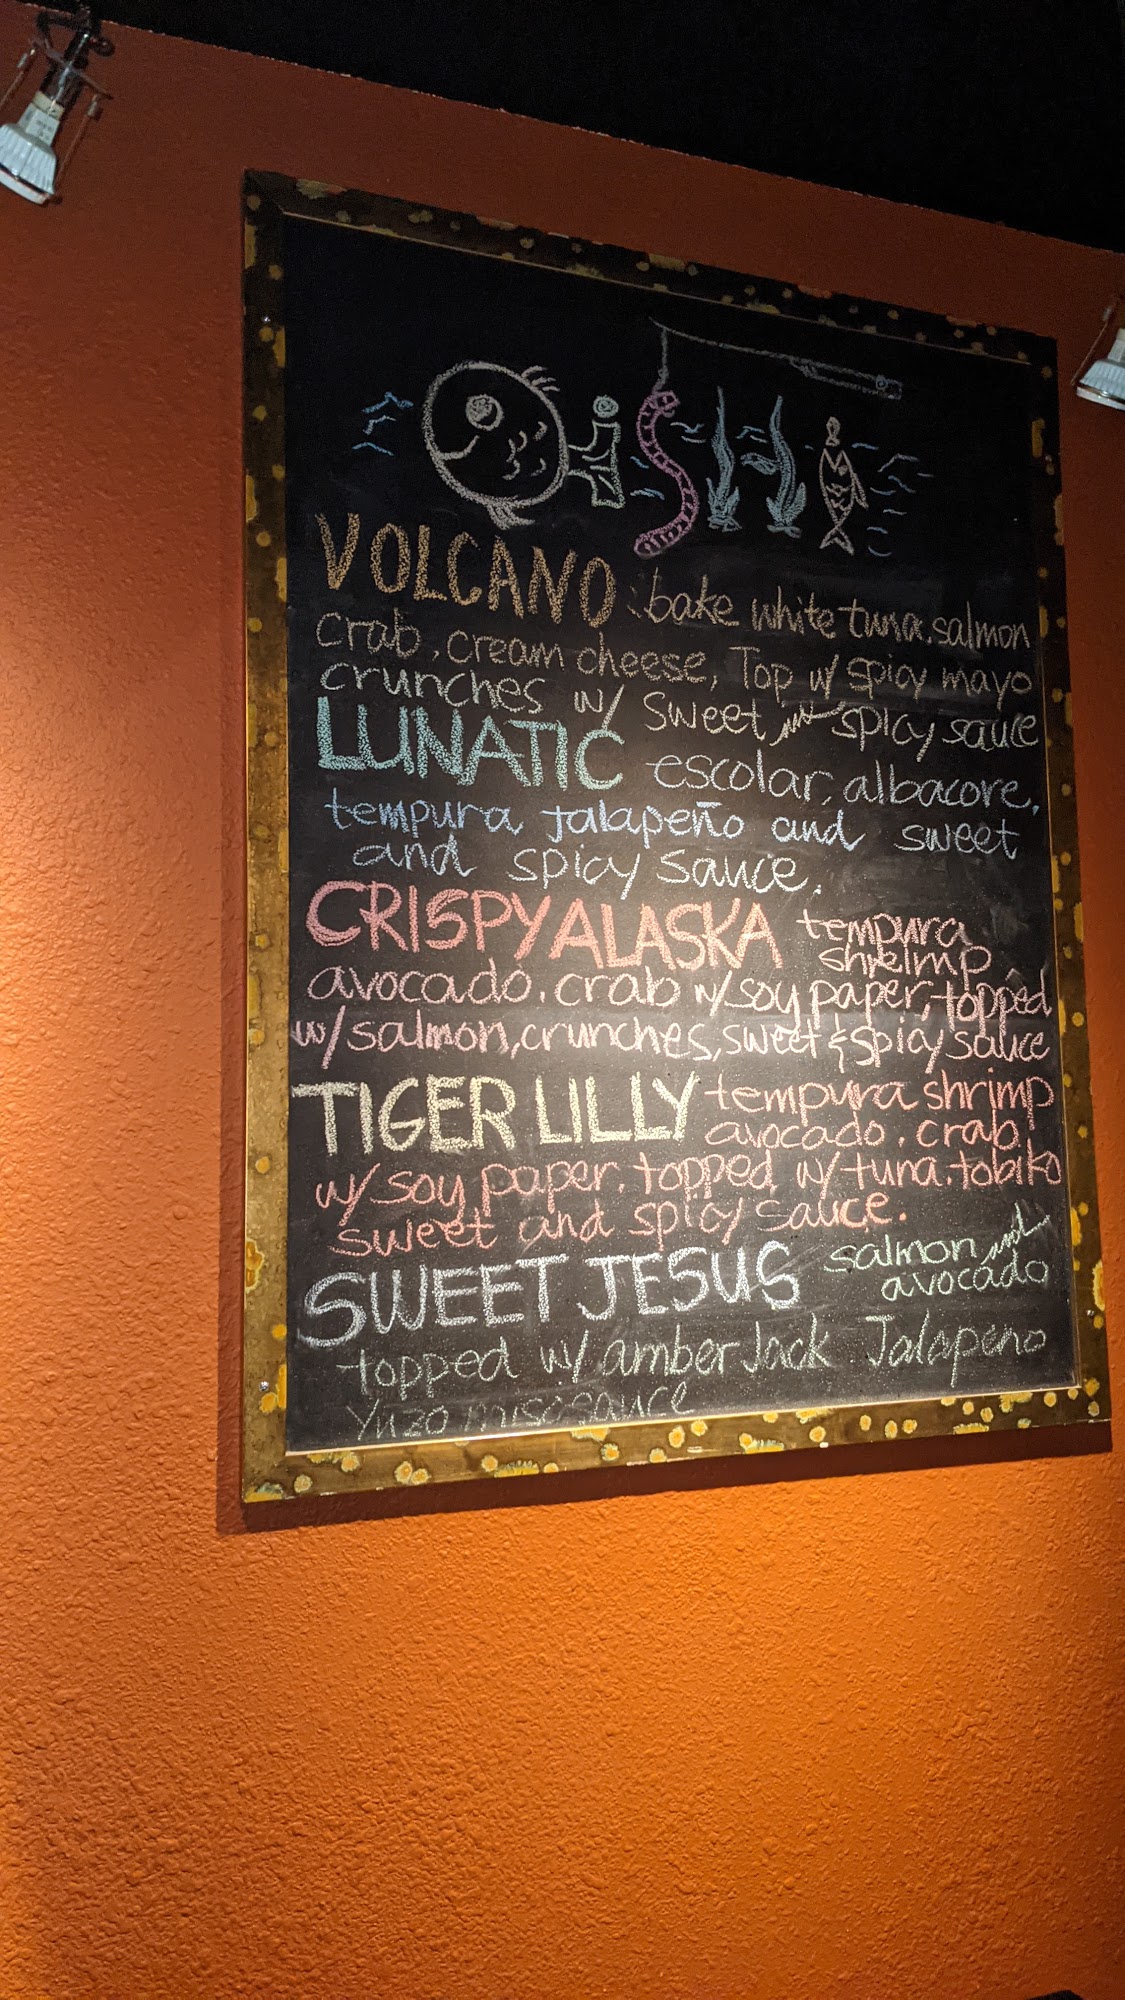 OiSHi
VOLCANO: bake white tuna, salmon
crab, cream cheese, Top w/ spicy mayo
crunches w/ Sweet and spicy sauce
LUNATIC escolar, albacore,
tempura Jalapeño and sweet
and spicy sauce.
CRISPY ALASKA tempura
shrimp
avocado, crab w/ soy paper, topped
w/ salmon, crunches, sweet & spicy sauce
TIGER LILLY tempura shrimp
avocado, crab
w/ soy paper, topped w/ tuna, tobiko
sweet and spicy sauce.
SWEET JESUS salmon and
avocado
topped w/ amber Jack Jalapeno
Yuzo miso sauce